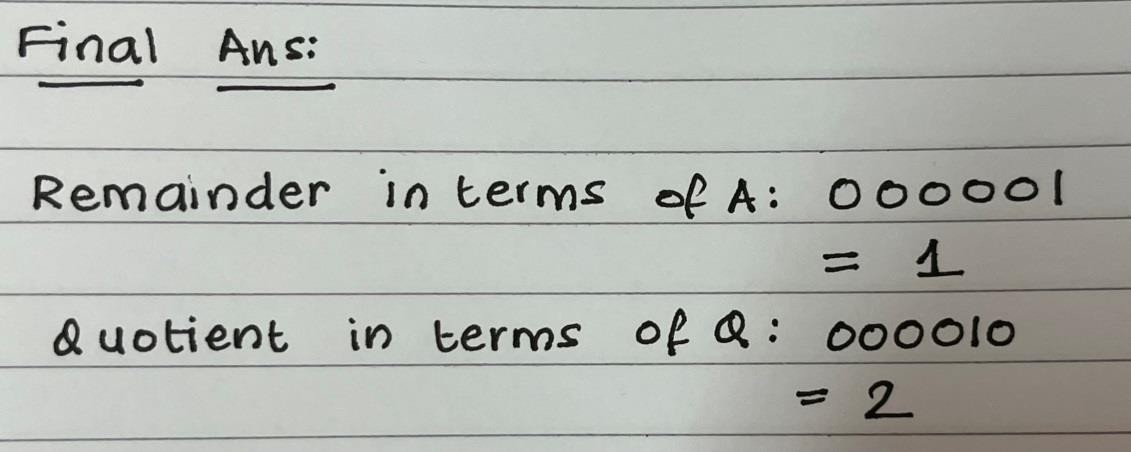 Final Ans:
Remainder in terms of A: 000001
= 1
Quotient in terms of Q: 000010
= 2